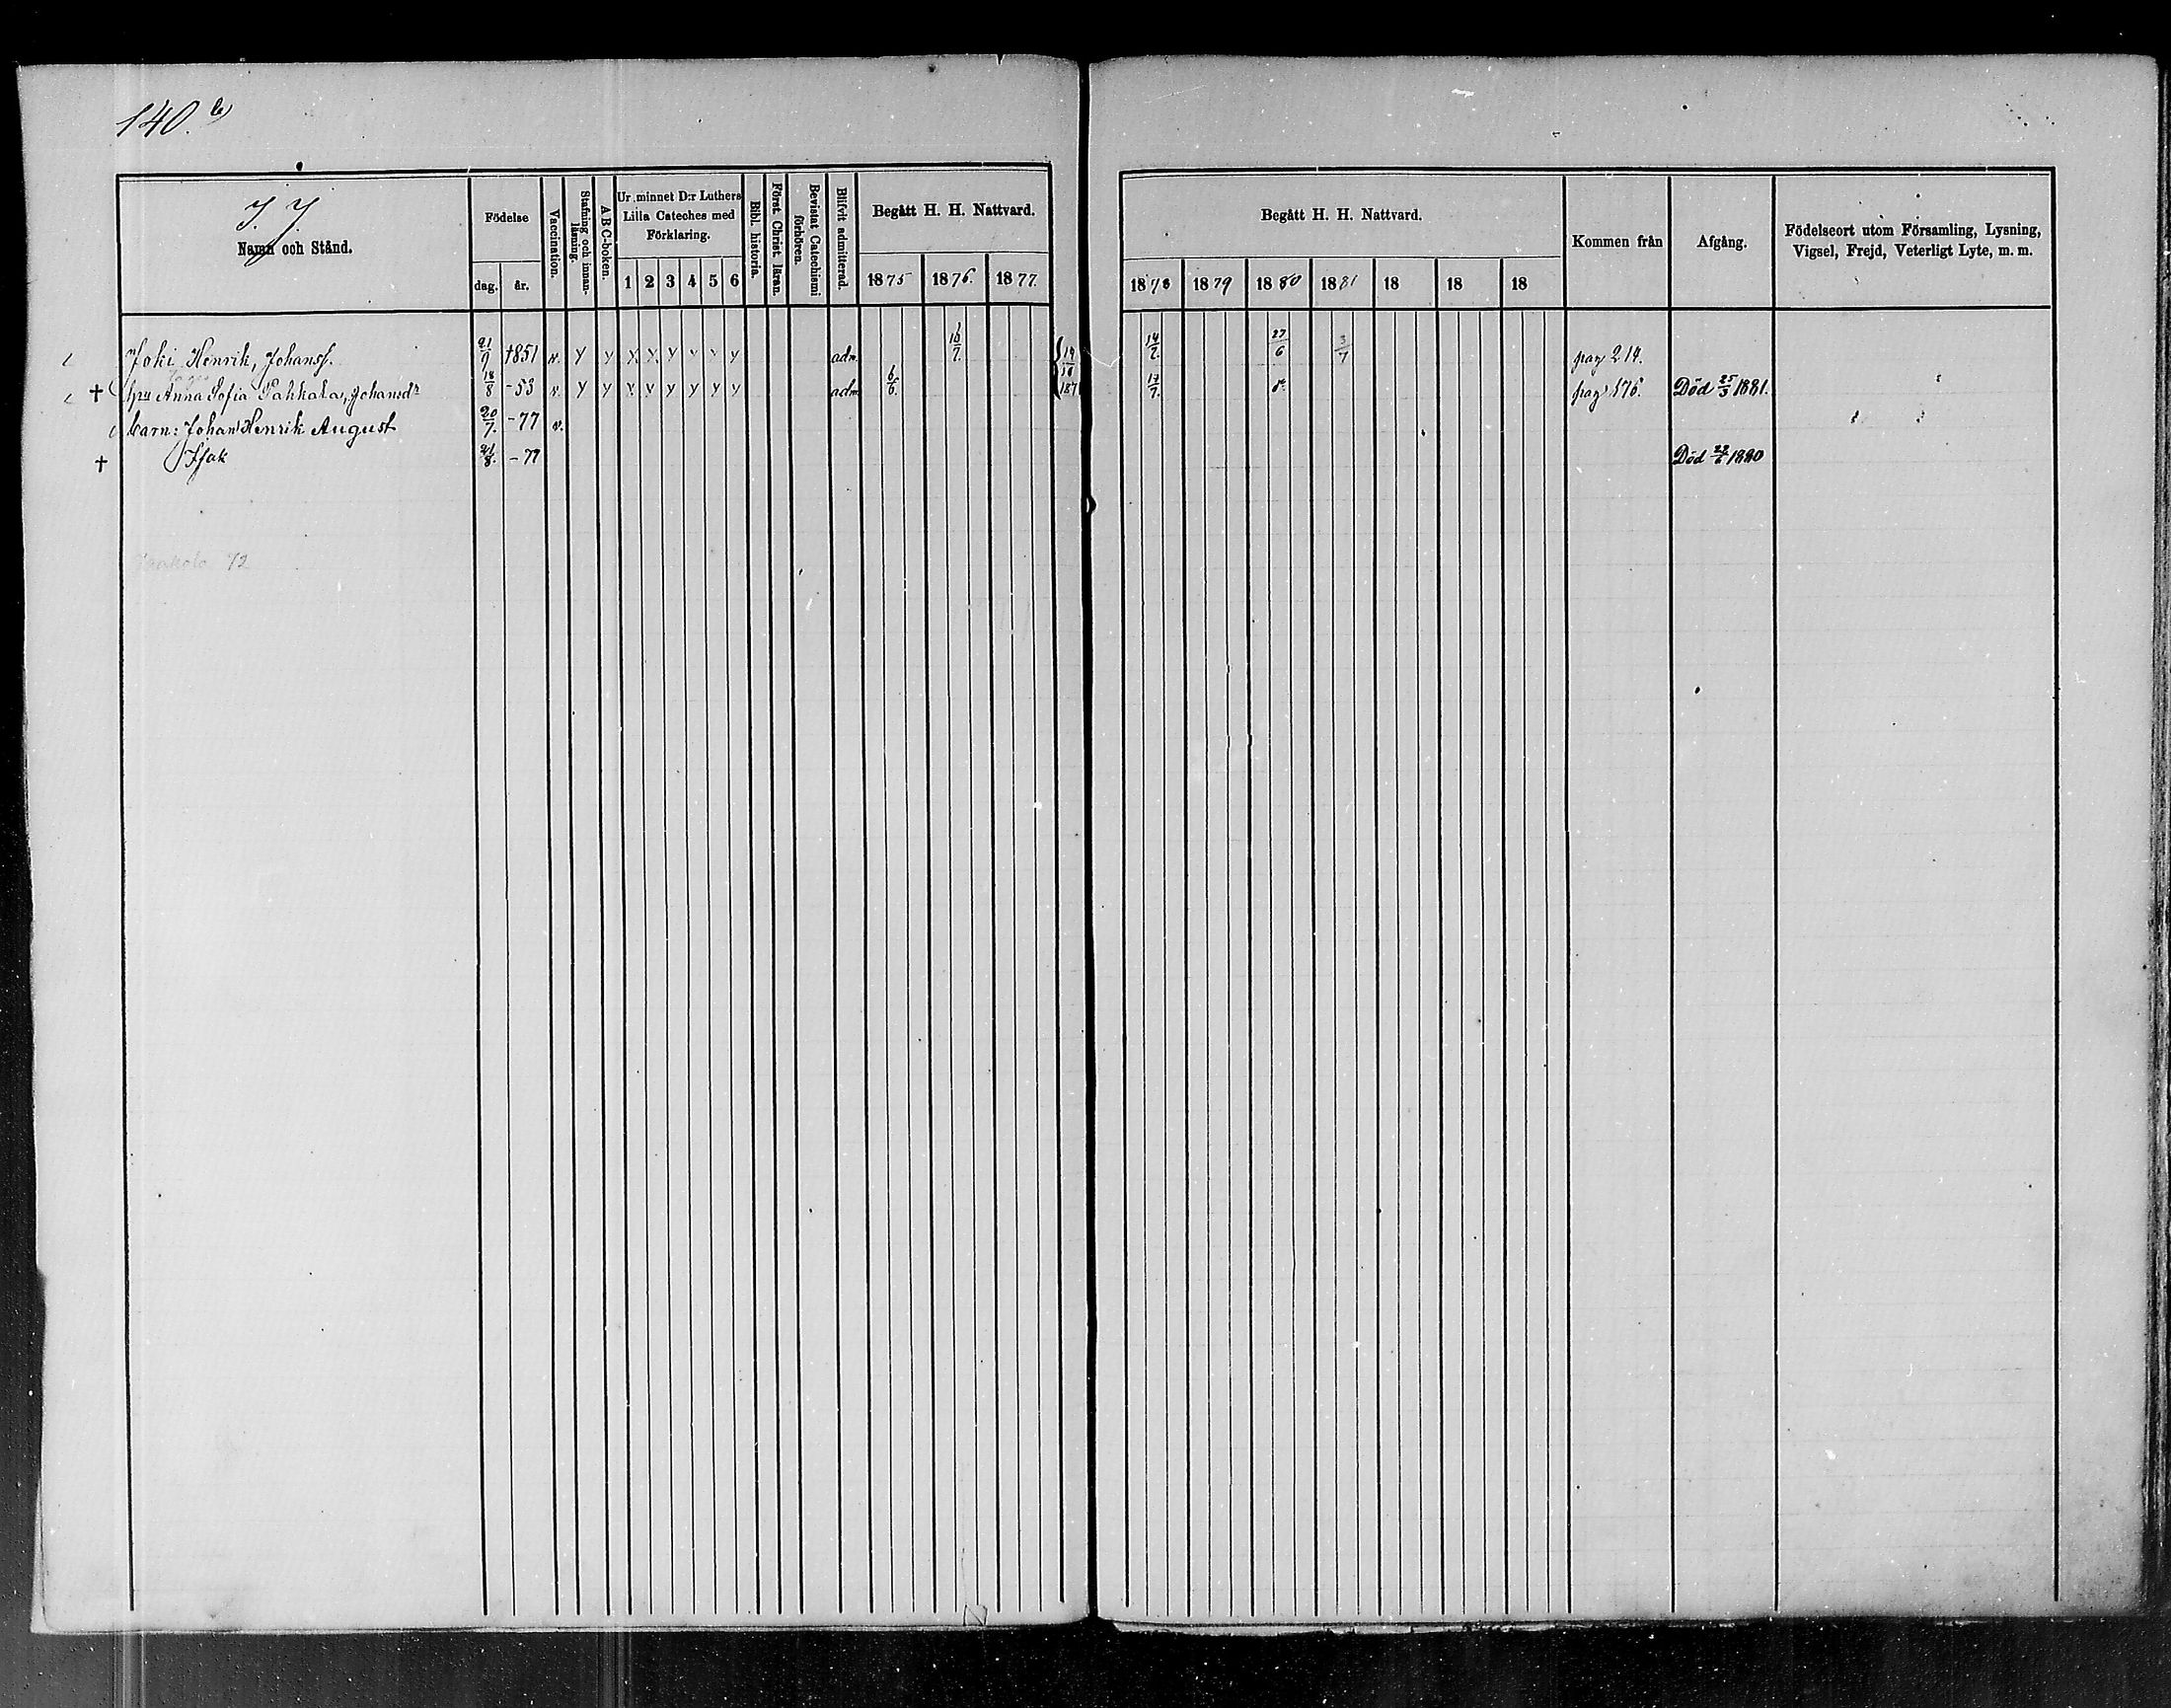 140. b)
J. J.
Namn och Stånd.
Födelse
dag. år.
Vaccination.
Stafning och innanläsning.
A B C-boken.
Ur minnet D:r Luthers Lilla Cateches med Förklaring.
1 2 3 4 5 6
Bibl. historia.
Först. Christ. läran.
Bevistat Catechismi förhören.
Blifvit admitterad.
Begått H. H. Nattvard.
1875 1876. 1877.
Begått H. H. Nattvard.
1878 1879 1880 1881 18 18 18
Kommen från
Afgång.
Födelseort utom Församling, Lysning, Vigsel, Frejd, Veterligt Lyte, m. m.
Joki Henrik, Johanss. 21/9 1851 v. y y y y y y y y adm. 16/7. 14/7. 27/6 3/7 pag 214.
† hru Anna Sofia Pahkala, Johansdr 18/8 -53 v. y y y y y y y y adm. 6/6. 17/7. pag 176. Död 25/3 1881.
barn: Johan Henrik August 20/7. -77 v.
† Isak 21/8. -79 Död 22/6 1880